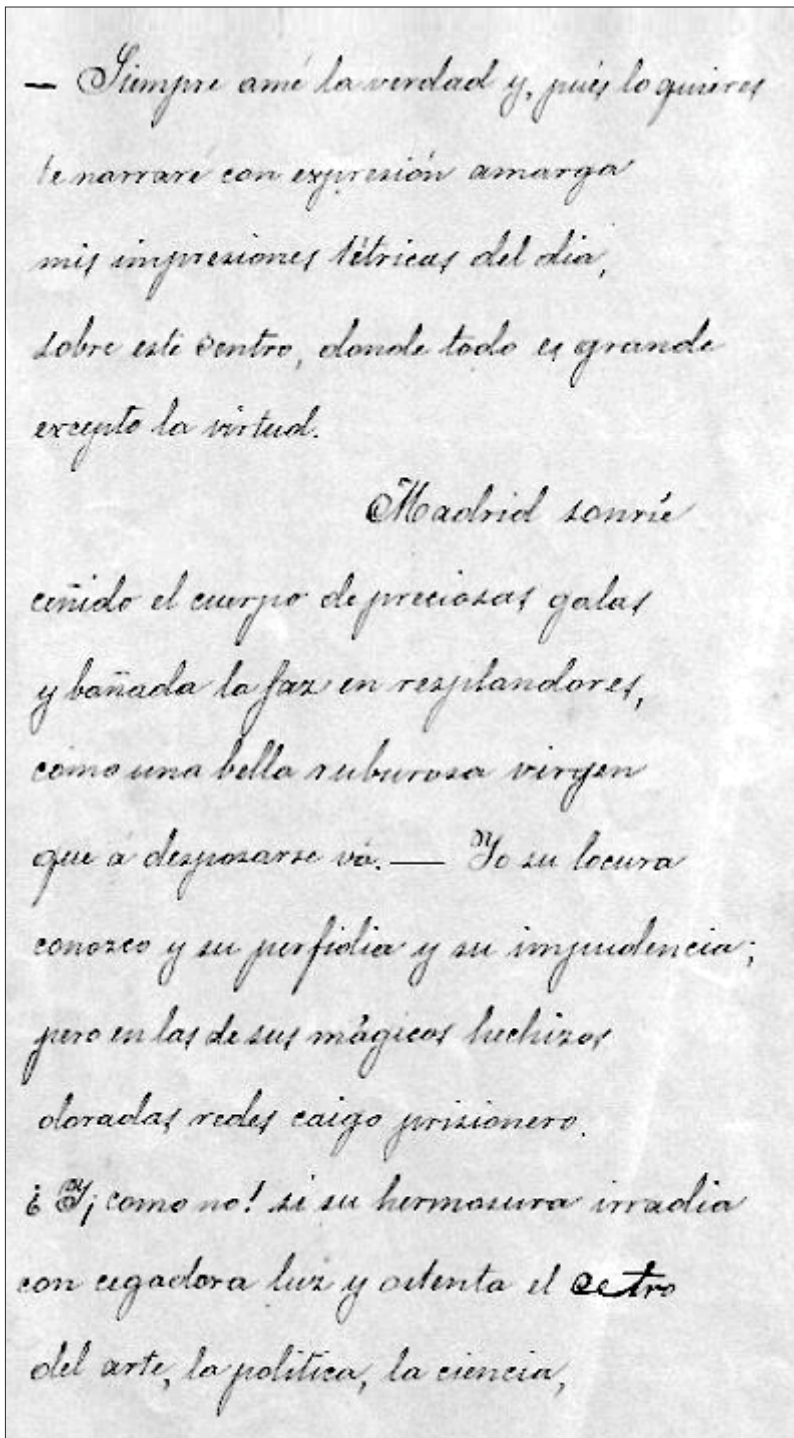 — Siempre amé la verdad y, pués lo quieres
te narraré con expresión amarga
mis impresiones tétricas del dia,
sobre este centro, donde todo es grande
excepto la virtud.
Madrid sonríe
ceñido el cuerpo de preciosas galas
y bañada la faz en resplandores,
como una bella ruburosa virgen
que á desposarse vá. — Yo su locura
conozco y su perfidia y su impudencia;
pero en las de sus mágicos hechizos
doradas redes caigo prisionero.
¿Y ¡como no! si su hermosura irradia
con cegadora luz y ostenta el cetro
del arte, la política, la ciencia,